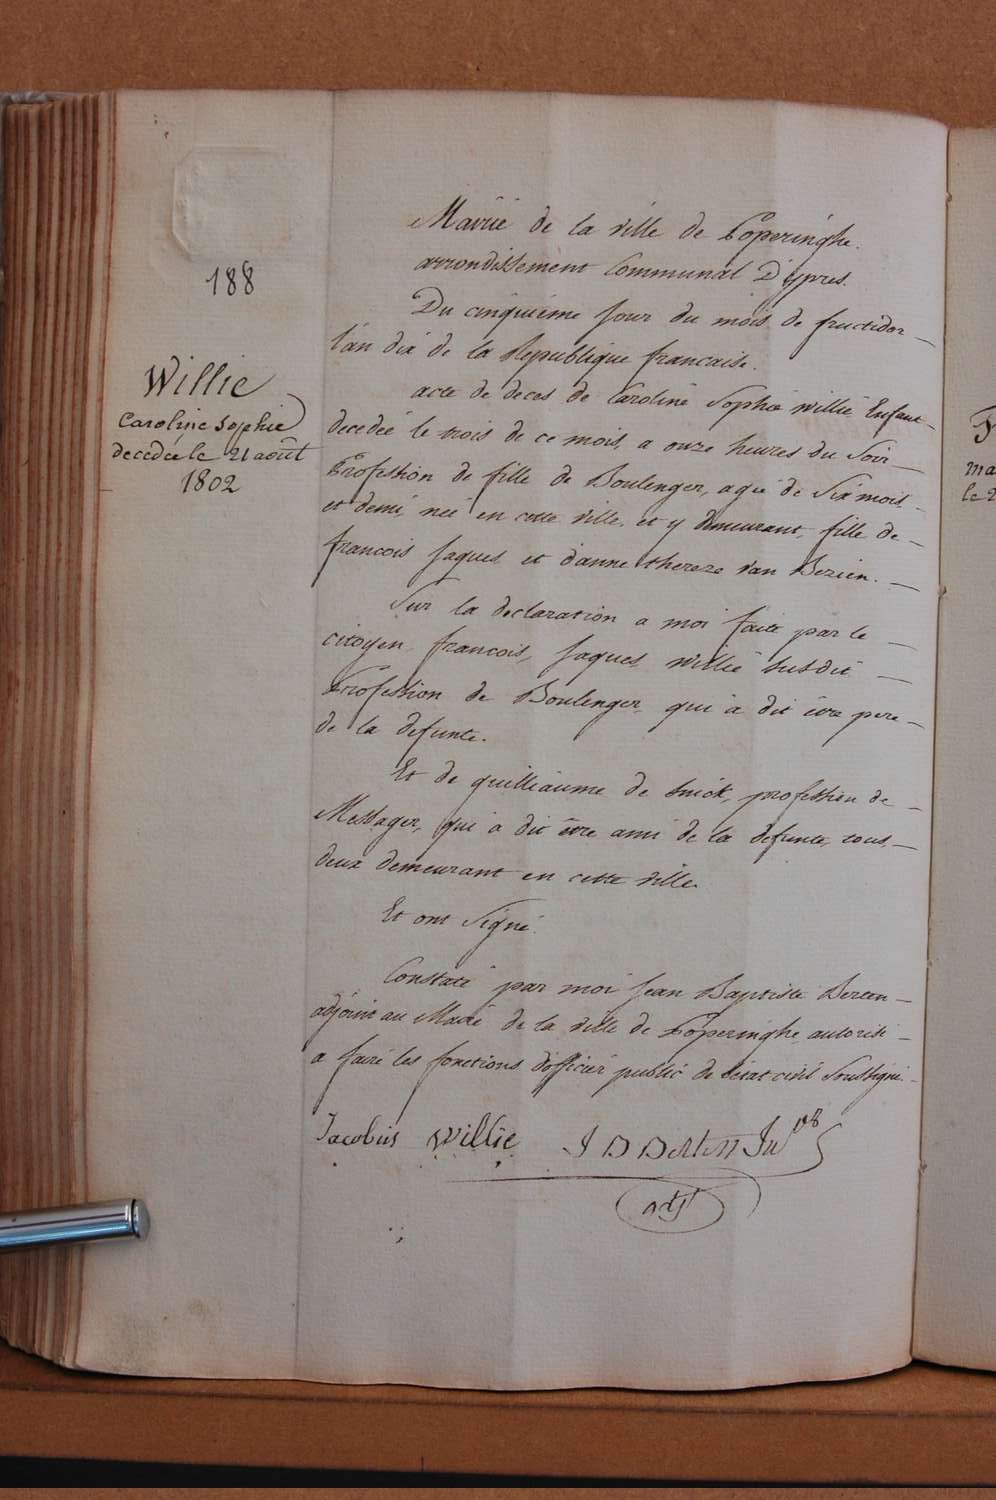 188
Willie
Caroline Sophie
decedée le 21 août
1802
Mairie de la ville de Poperinghe.
arrondissement Communal D'ypres.
Du cinquieme jour du mois de fructidor
l'an dix de la Republique francaise.
acte de deces de Caroline Sophie willie Enfant
decedée le trois de ce mois, a onze heures du Soir
Profession de fille de Boulenger, agée de Six mois
et demi, née en cette ville, et y demeurant, fille de
francois Jaques et d'anne thereze van Bezien.
Sur la declaration a moi faite par le
citoyen, francois, Jaques willie susdit
Profession de Boulenger qui a dit être pere
de la defunte.
Et de guilliaume de snick, profession de
Messager, qui a dit être ami de la defunte, tous
deux demeurant en cette ville.
Et ont Signé.
Constaté par moi Jean Baptiste Berten
adjoint au Maire de la ville de Poperinghe autorisé
a faire les fonctions d'officier public de l'etat civil Soussigné.
Jacobus Willie J B Berten
adjt
F
ma
le 2